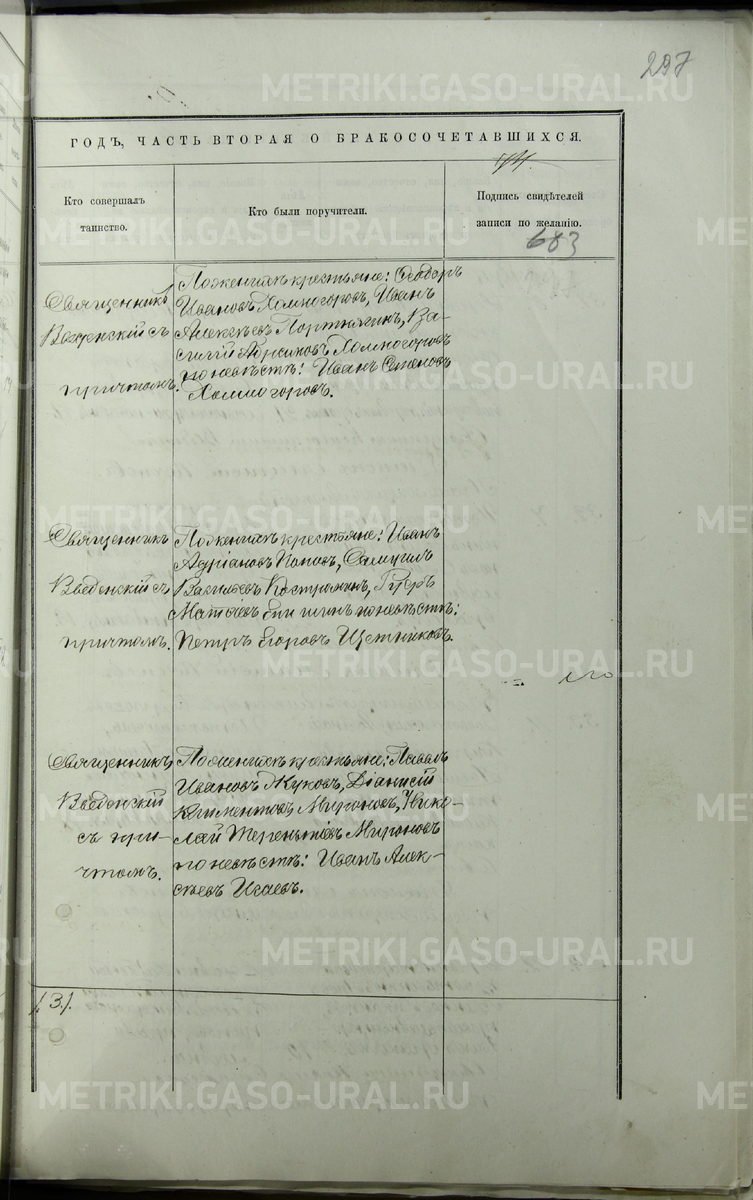 297
ГОДЪ, ЧАСТЬ ВТОРАЯ О БРАКОСОЧЕТАВШИХСЯ.
Кто совершалъ
таинство.
Кто были поручители.
Подпись свидѣтелей
записи по желанію.
683
Священникъ
Введенскій съ
причтомъ.
По женихѣ крестьяне: Ѳеодоръ
Ивановъ Холмогоровъ, Иванъ
Алексѣевъ Портнягинъ, Ва-
силій Холмогоровъ
по невѣстѣ: Иванъ Семеновъ
Холмогоровъ.
Священникъ
Введенскій съ
причтомъ.
По женихѣ крестьяне: Иванъ
Адріановъ Поповъ, Самуилъ
Васильевъ Костроминъ,
Матѳіевъ по невѣстѣ:
Петръ Егоровъ Щетниковъ.
Священникъ
Введенскій
съ при-
чтомъ.
По женихѣ крестьяне: Павелъ
Ивановъ Жуковъ, Діанисій
Климентовъ Мироновъ, Нико-
лай Терентьевъ Мироновъ
по невѣстѣ: Иванъ Алек-
сѣевъ Исаевъ.
/.3./
METRIKI.GASO-URAL.RU